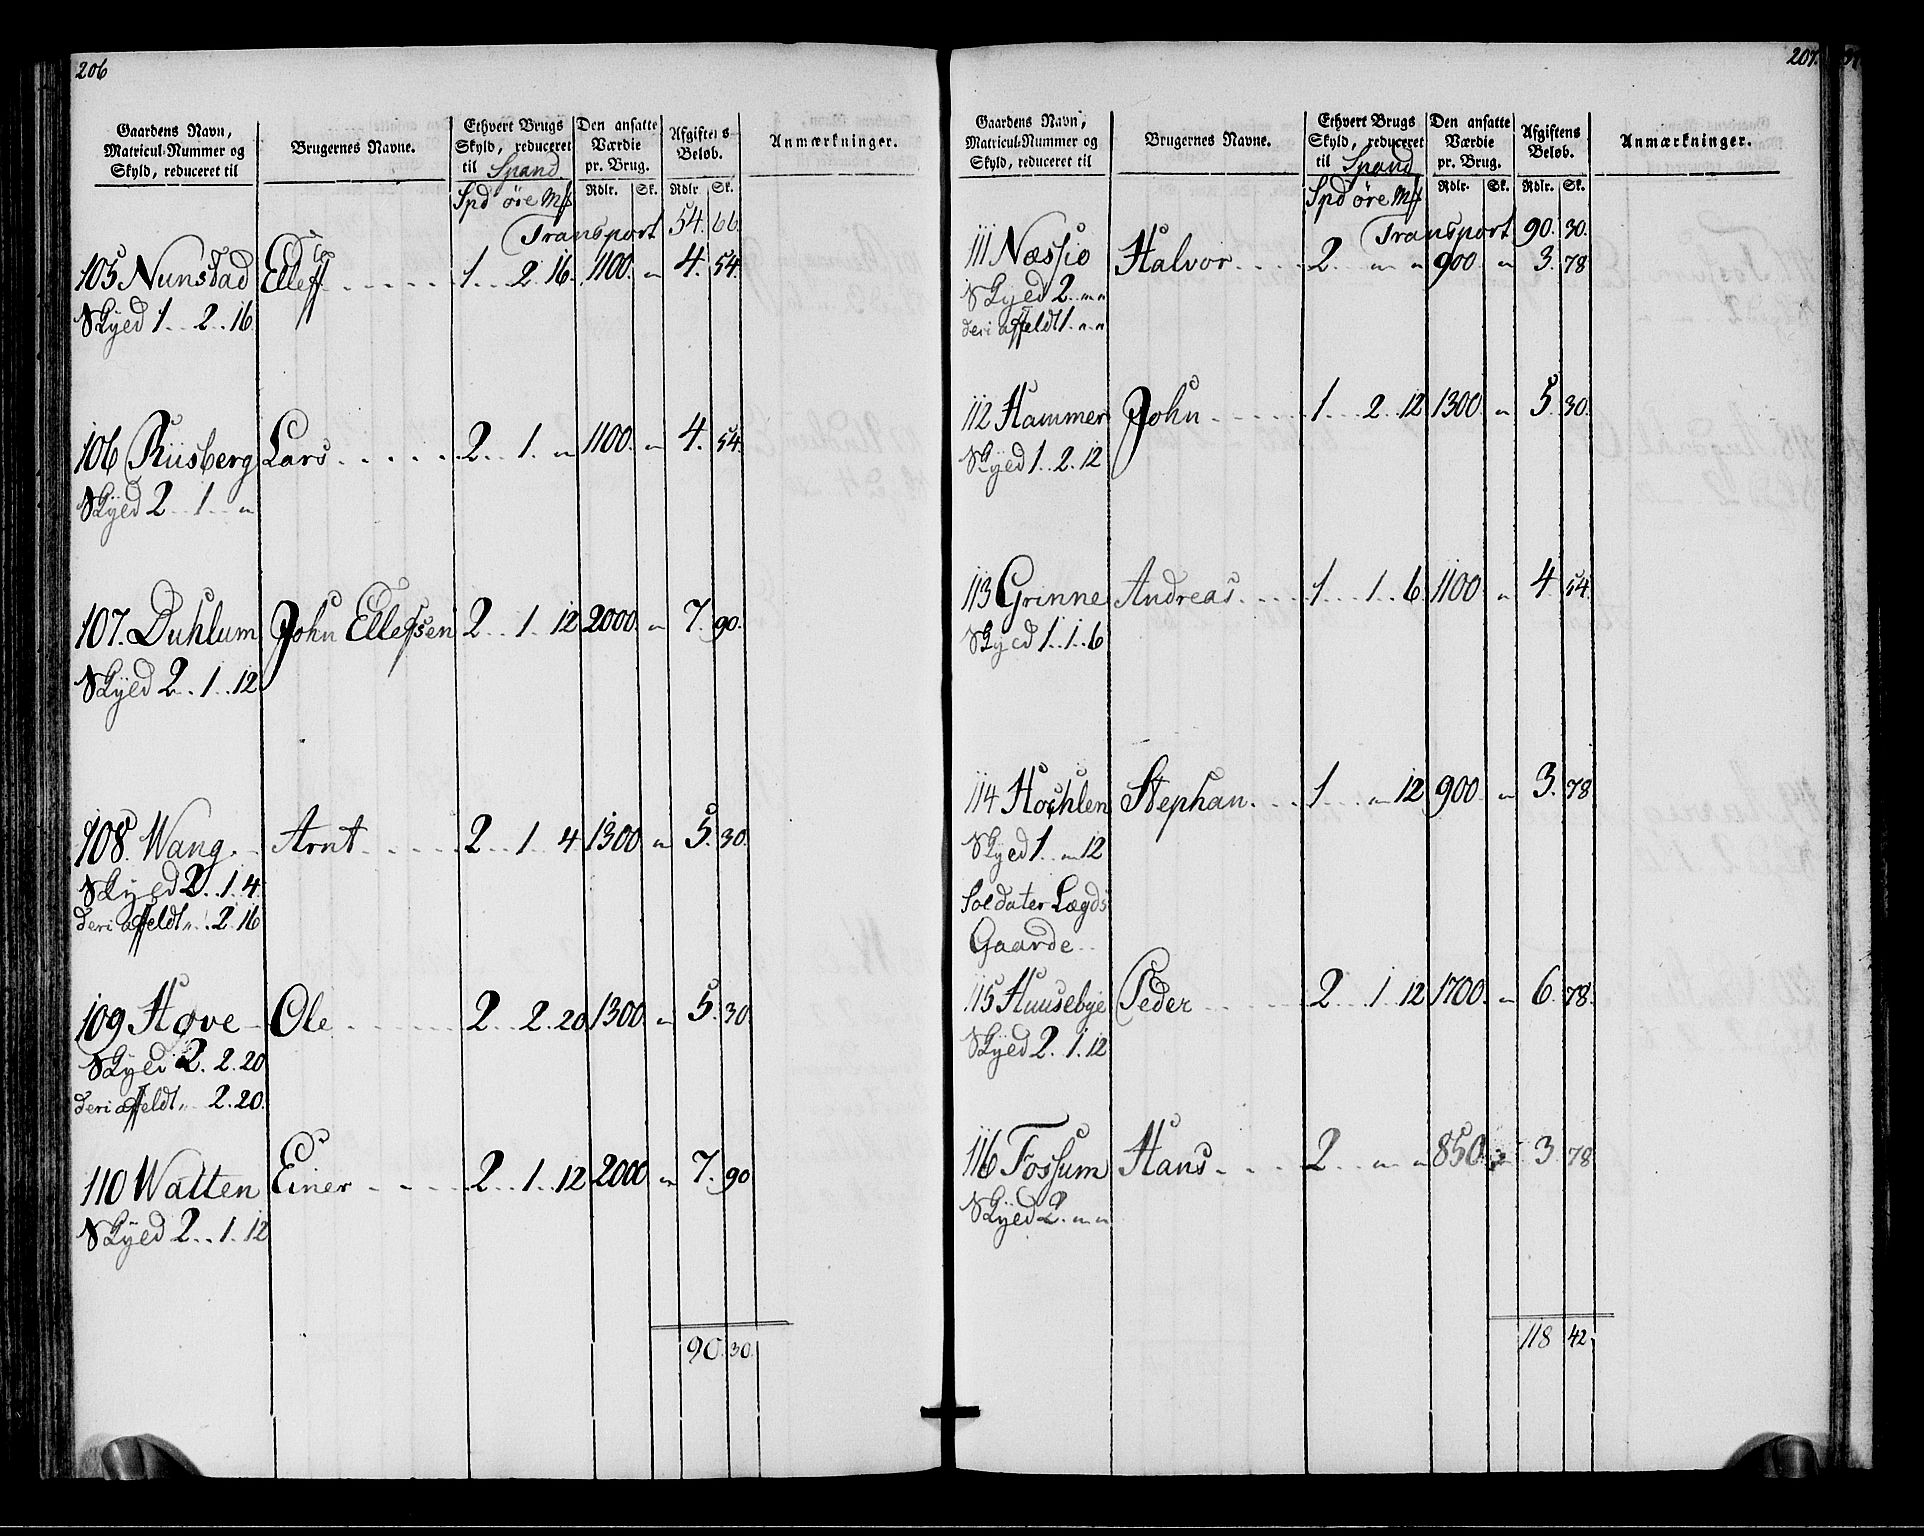 206
Gaardens Navn, Matricul-Nummer og Skyld, reduceret til | Brugernes Navne. | Ethvert Brugs Skyld, reduceret til Spand | Den ansatte Værdie pr. Brug. | Afgiftens Beløb. | Anmærkninger.
Spd øre Mk | Rdlr. | Sk. | Rdlr. | Sk.
Transport 54. 66.
105 Nunstad Ellef 1. 2. 16. 1100. " 4. 54.
Skyed 1. 2. 16
106 Riisberg Lars 2. 1. " 1100. " 4. 54.
Skyed 2. 1. "
107. Duhlum John Ellefsen 2. 1. 12 2000. " 7. 90.
Skyed 2. 1. 12
108. Wang. Arnt 2. 1. 4 1300 " 5. 30.
Skyed 2. 1. 4.
deri affeldt ". 2. 16
109 Høve Ole 2. 2. 20 1300 " 5. 30
Skyed 2. 2. 20
deri affeldt " 2. 20.
110 Watten Einer 2. 1. 12 2000 " 7. 90
Skyed 2. 1. 12
90. 30.
207.
Gaardens Navn, Matricul-Nummer og Skyld, reduceret til | Brugernes Navne. | Ethvert Brugs Skyld, reduceret til Spand | Den ansatte Værdie pr. Brug. | Afgiftens Beløb. | Anmærkninger.
Spd øre Mk | Rdlr. | Sk. | Rdlr. | Sk.
Transport 90. 30.
111 Næssio Halvor 2. " " 900 " 3. 78
Skyed 2. " "
deri affeldt 1. " "
112 Hammer John 1. 2. 12 1300 " 5. 30.
Skyed 1. 2. 12
113 Grinne Andreas 1. 1. 6 1100 " 4 54.
Skyed 1. 1. 6
114 Hochlen Stephan 1. " 12 900. " 3. 78
Skyed 1. " 12
Soldater Lægds
Gaarde
115 Huusebye Peder 2. 1 12 1700. " 6. 78.
Skyed 2. 1. 12
116 Fossum Hans 2. " " 850. " 3. 78
Skyed 2. " "
118 42.